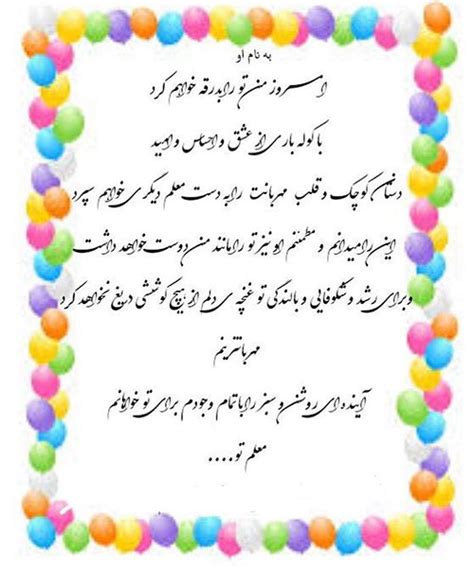 به نام او
امروز من تو را بدرقه خواهم کرد
با کوله باری از عشق و احساس و امید
دستان کوچک و قلب مهربانت را به دست معلم دیگری خواهم سپرد
این را میدانم و مطمئنم او نیز تو را مانند من دوست خواهد داشت
و برای رشد و شکوفایی و بالندگی تو غنچه ی دلم از هیچ کوششی دریغ نخواهد کرد
مهربانترینم
آینده ای روشن و سبز را با تمام وجودم برای تو خواهانم
معلم تو....